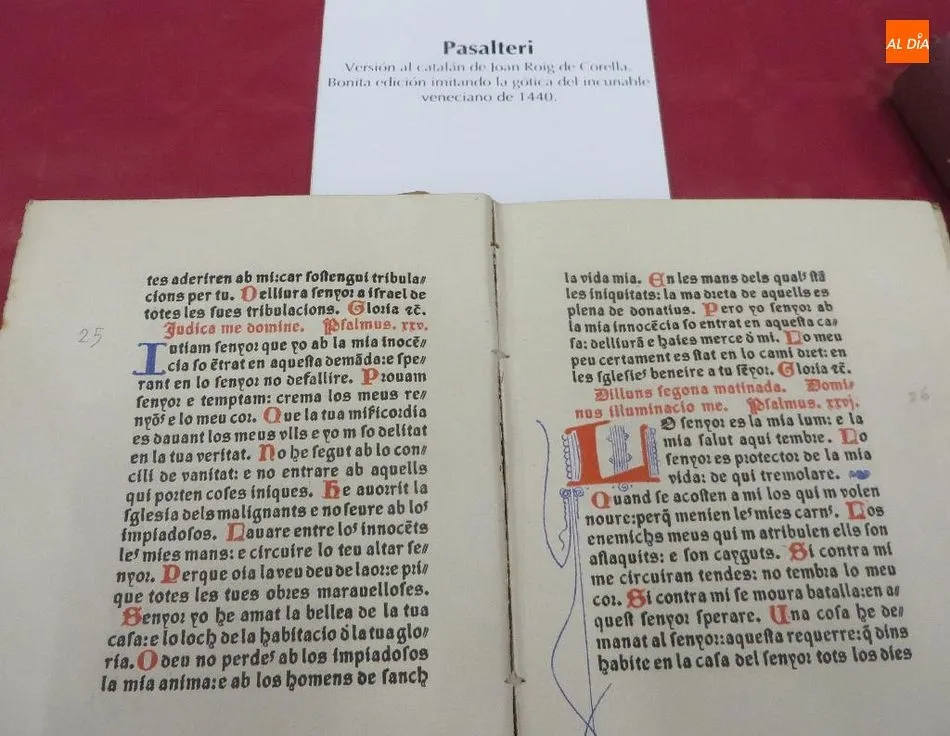 AL DÍA
Pasalteri
Versión al catalán de Joan Roig de Corella.
Bonita edición imitando la gótica del incunable
veneciano de 1440.
25
tes aderiren ab mi:car ſoſtengui tribula⸗
cions per tu. Delliura ſenyor a iſrael de
totes les ſues tribulacions. Gloria ⁊c̄.
Judica me domine. Pſalmus. xxv.
Jutiam ſenyor que yo ab la mia inocē⸗
cia ſo ētrat en aqueſta demāda:e ſpe⸗
rant en lo ſenyor no defallire. Prouam
ſenyor e temptam: crema los meus re⸗
nyōˢ e lo meu cor. Que la tua miſicordia
es dauant los meus vlls e yo m ſo delitat
en la tua veritat. No he ſegut ab lo con⸗
cili de vanitat: e no entrare ab aquells
qui porten coſes iniques. He auorrit la
ſgleſia dels malignants e no ſeure ab loˢ
impiadoſos. Lauare entre loˢ innocēts
leˢ mies mans: e circuire lo teu altar ſe⸗
nyor. Perque oia la veu deu de laor:e pri⸗
que totes les tues obres marauelloſes.
Senyor yo he amat la bellea de la tua
caſa:e lo loch de la habitacio d̄ la tua glo⸗
ria. O deu no perdeˢ ab los impiadoſos
la mia anima:e ab los homens de ſanch
la vida mia. En les mans dels qualˢ ſtā
les iniquitats: la ma dreta de aquells es
plena de donatius. Pero yo ſenyor ab
la mia innocēcia ſo entrat en aqueſta ca⸗
ſa: delliurā e haies merce d̄ mi. Lo meu
peu certament es ſtat en lo cami dret: en
les ſgleſieˢ beneire a tu ſēyor. Gloria ⁊c̄.
Dilluns ſegona matinada. Domi⸗
nus illuminacio me. Pſalmus. xxvj.
26
LO ſenyor es la mia lum: e la
mia ſalut aqui tembre. Lo
ſenyor es protector de la mia
vida: de qui tremolare.
Quand ſe acoſten a mi los qui m volen
noure:perq̄ menien leˢ mies carnˢ. Los
enemichs meus qui m atribulen ells ſon
aflaquits: e ſon cayguts. Si contra mi
me circuiran tendes: no tembra lo meu
cor. Si contra mi ſe moura batalla:en a⸗
queſt ſenyor ſperare. Una coſa he de⸗
manat al ſenyor:aqueſta requerre:q̄ dins
habite en la caſa del ſenyor tots los dies